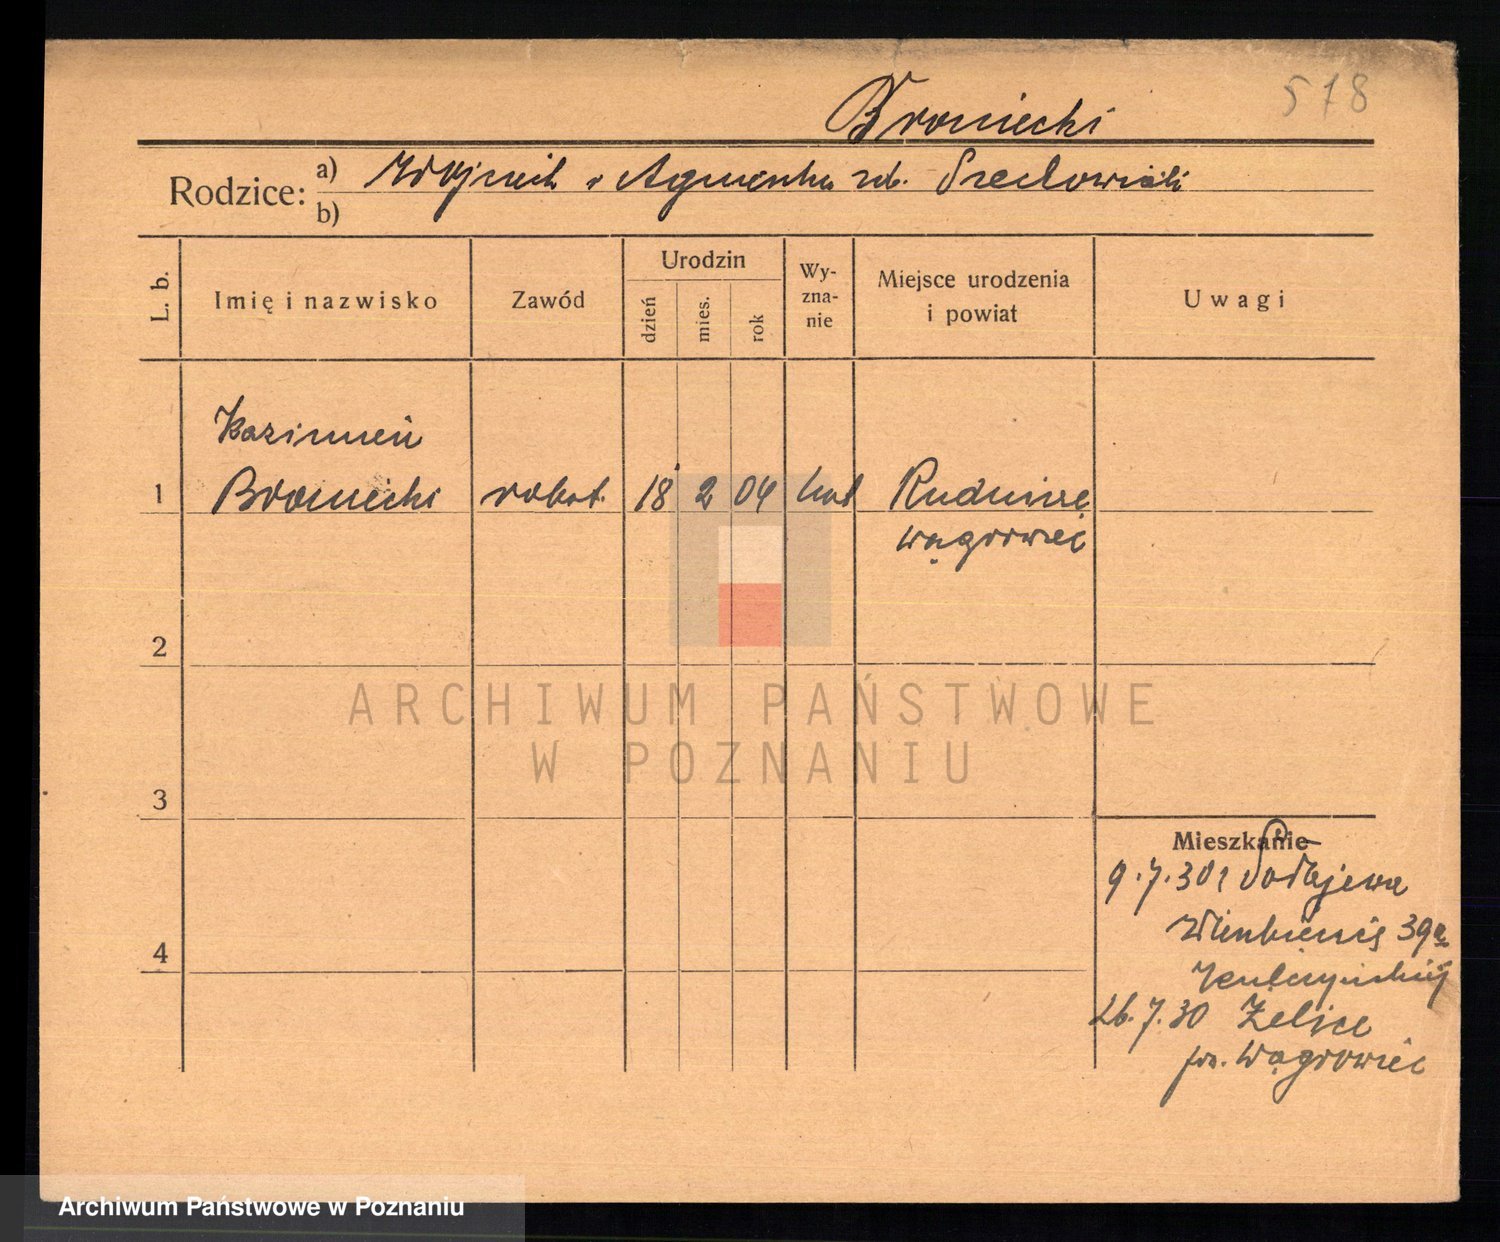 578
Broniecki
Rodzice: a) Wojciech i Agnieszka zd.
b)
L. b.
Imię i nazwisko
Zawód
Urodzin
dzień
mies.
rok
Wy-
zna-
nie
Miejsce urodzenia
i powiat
Uwagi
Kazimierz
1 Broniecki robot. 18 2 04 kat Rudnicze
Wągrowiec
2
ARCHIWUM PAŃSTWOWE
W POZNANIU
3
Mieszkanie
9.7.30
39a
4
26.7.30 Żelice
pow. Wągrowiec
Archiwum Państwowe w Poznaniu